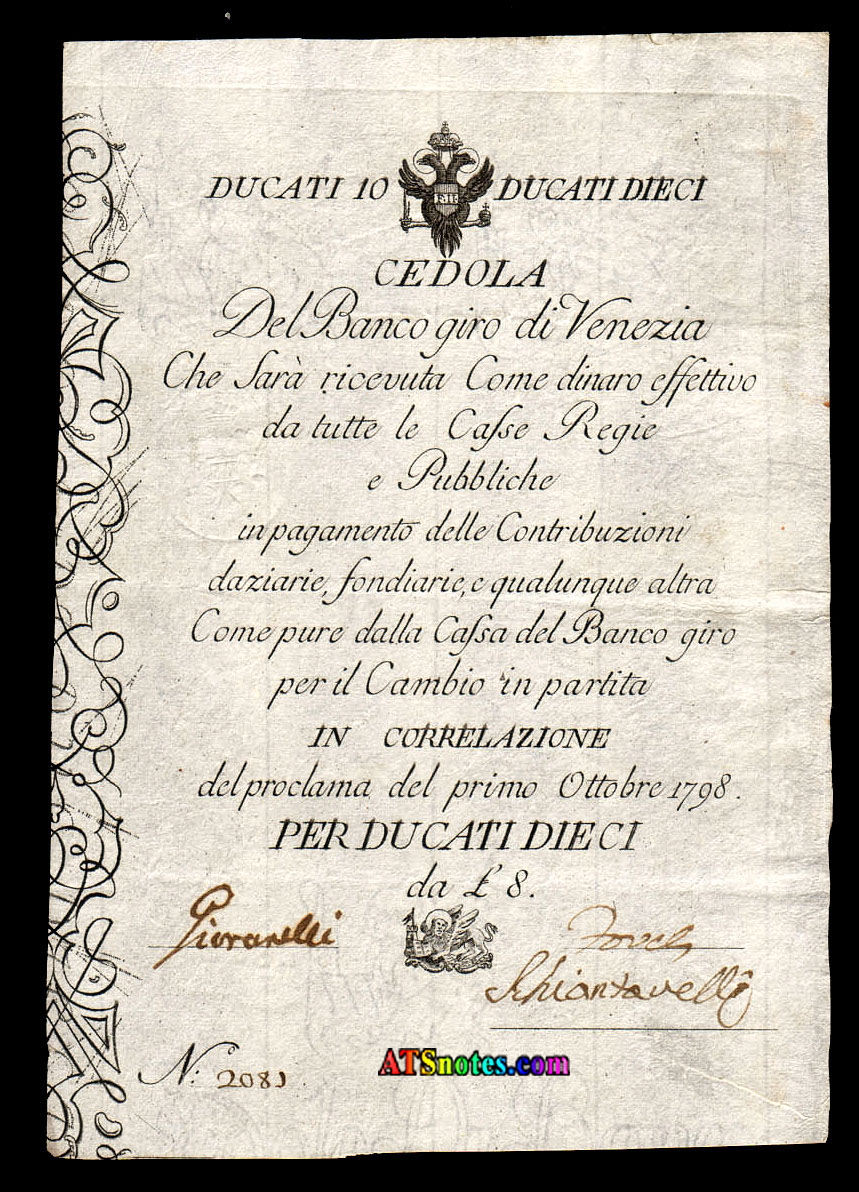 DUCATI 10 DUCATI DIECI
CEDOLA
Del Banco giro di Venezia
Che Sarà ricevuta Come dinaro effettivo
da tutte le Caſse Regie
e Pubbliche
in pagamento delle Contribuzioni
daziarie, fondiarie, e qualunque altra
Come pure dalla Caſsa del Banco giro
per il Cambio in partita
IN CORRELAZIONE
del proclama del primo Ottobre 1798.
PER DUCATI DIECI
da £ 8.
Giovanelli
N.º 2081
ATSnotes.com